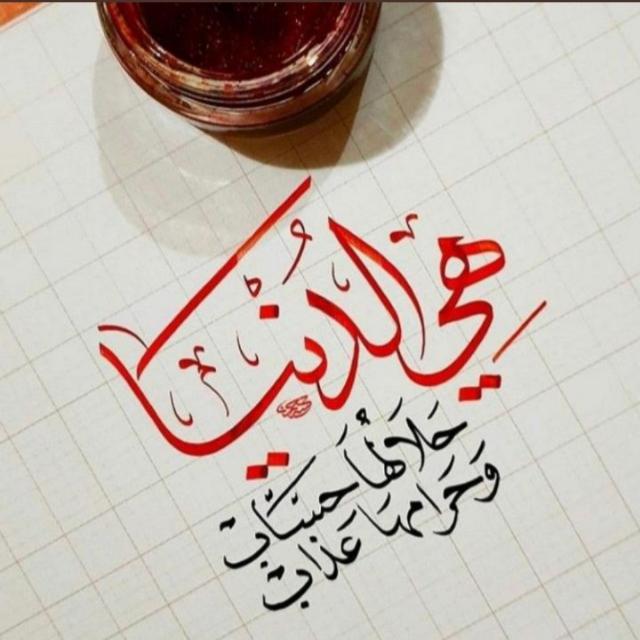 هِيَ الدُّنْيَا
حَلَالُهَا حِسَابٌ
وَحَرَامُهَا عَذَابٌ